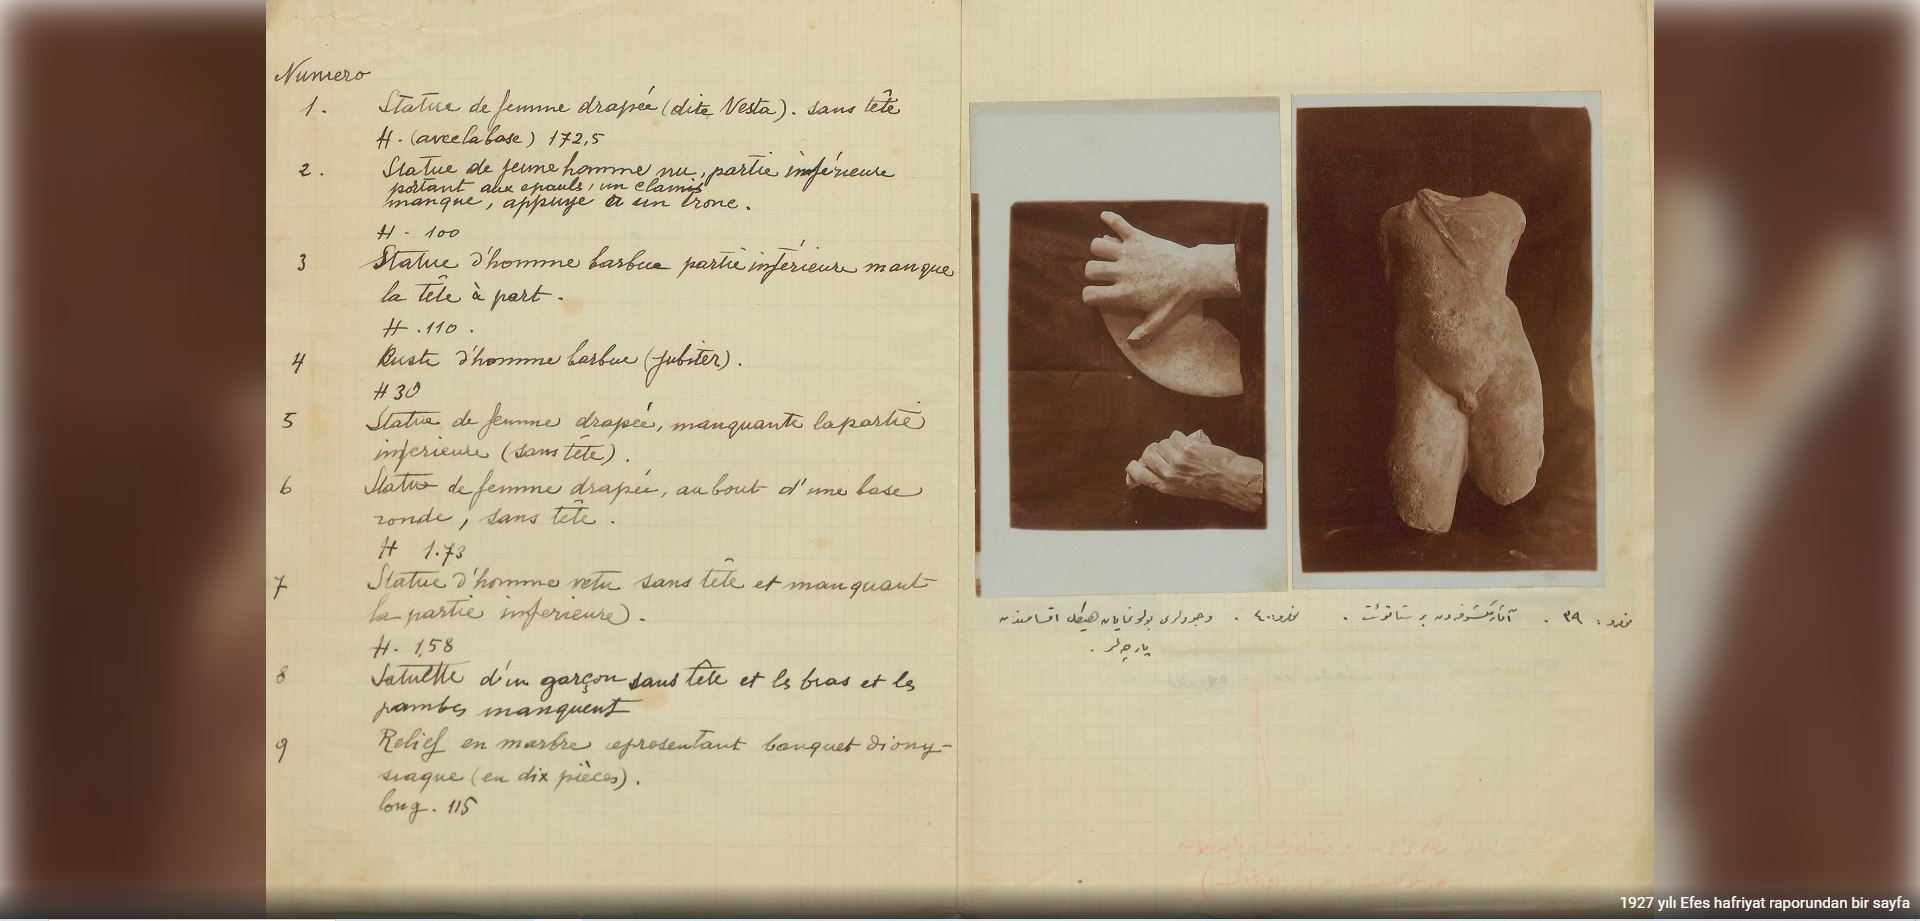 Numero
1. Statue de femme drapée (dite Vesta). sans tête
H. (avec la base) 172,5
2. Statue de jeune homme nu, partie inférieure
portant aux epauls, un clamis
manque, appuye a un tronc.
H - 100
3 Statue d'homme barbue partie inférieure manque
la tête à part.
H. 110.
4 Buste d'homme barbue (Jubiter).
H 30
5 Statue de femme drapée, manquante la partie
inferieure (sans tête).
6 Statue de femme drapée, au bout d'une base
ronde, sans tête.
H 1.73
7 Statue d'homme vetu sans tête et manquant
la partie inferieure).
H. 1,58
8 Satuette d'un garçon sans tête et ls bras et les
jambes manquent
9 Relief en marbre epresentant banquet diony-
siaque (en dix pièces).
long. 115
نمرو: ٣٩. آثار مكشوفه‌دن بر ستاتوئت.
نمرو: ٤٠. وجودلرى بولونمايان هيكل اقسامندن
پارچه‌لر.
1927 yılı Efes hafriyat raporundan bir sayfa